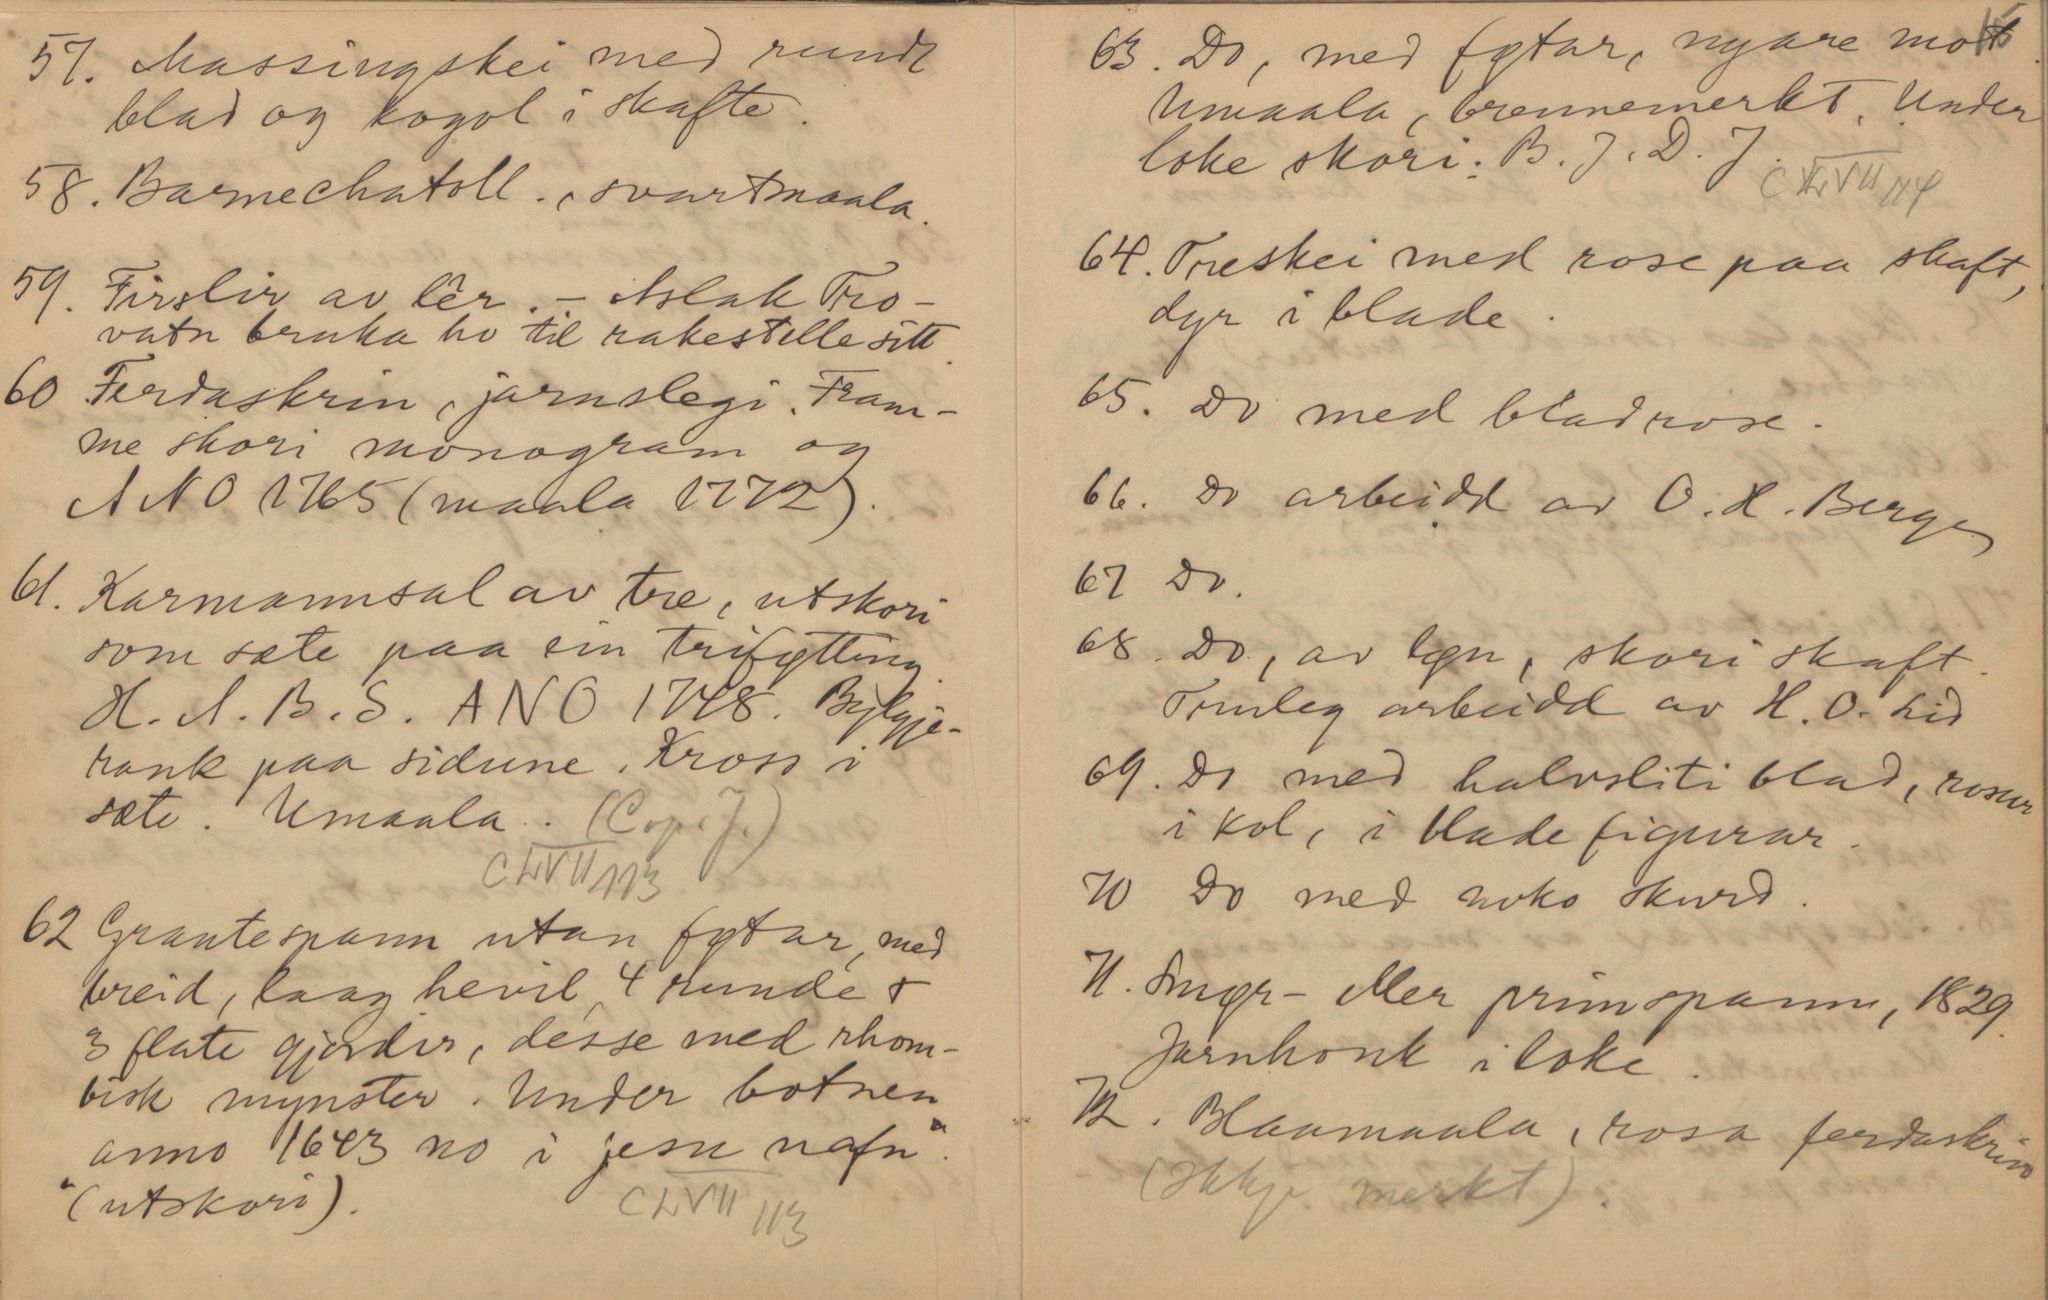 57. Massingskei med rundt
blad og kogol i skafte.
58. Barnechatoll., svartmaala.
59. Firslir av lêr. – Aslak Tro-
vatn bruka ho til rakestelle sitt.
60 Ferdaskrin, jarnslegi. Fram-
me skori monogram og
ANO 1765 (maala 1772).
61. Karmannsal av tre, utskori
som sæte paa ein triføtting
H. A. B. S. ANO 1748. Bylgje-
rank paa sidune. Kross i
sæte. Umaala. (Cop. J.)
CLVII 113
62 Grautespann utan føtar, med
breid, laag hevil, 4 runde +
3 flate gjorder, desse med rhom-
bisk mynster. Under botnen
anno 1643 no i jesu nafn".
"(utskori).
CLVII 113
15
63. Do, med føtar, nyare mot.
Umaala, brennemerkt. Under
loke skori: B. J. D. J.
CLVII 114
64. Treskei med rose paa skaft,
dyr i blade.
65. Do med bladrose.
66. Do arbeidd av O. H. Berge
67 Do.
68. Do, av løn, skori skaft.
Truleg arbeidd av H. O. Lid
69. Do med halvsliti blad, rosur
i kol, i blade figurar.
70 Do med noko skurd.
71. Smør- eller primspann, 1829.
Jarnhonk i loke.
72. Blaamaala, rosa ferdaskrin
(Ikkje merkt).